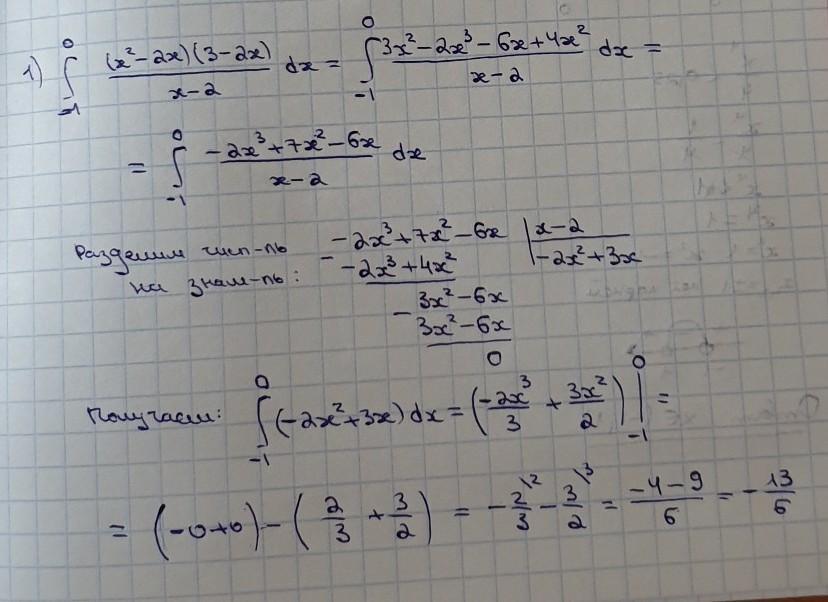 1) ∫_{-1}^{0} (x²-2x)(3-2x)/(x-2) dx = ∫_{-1}^{0} (3x²-2x³-6x+4x²)/(x-2) dx =
= ∫_{-1}^{0} (-2x³+7x²-6x)/(x-2) dx
Разделим числ-ль -2x³+7x²-6x | x-2
на знам-ль: - -2x³+4x² | -2x²+3x
- 3x²-6x
3x²-6x
0
Получаем: ∫_{-1}^{0} (-2x²+3x) dx = (-2x³/3 + 3x²/2) |_{-1}^{0} =
= (-0+0) - (2/3 + 3/2) = -2/3^{\2} - 3/2^{\3} = (-4-9)/6 = -13/6